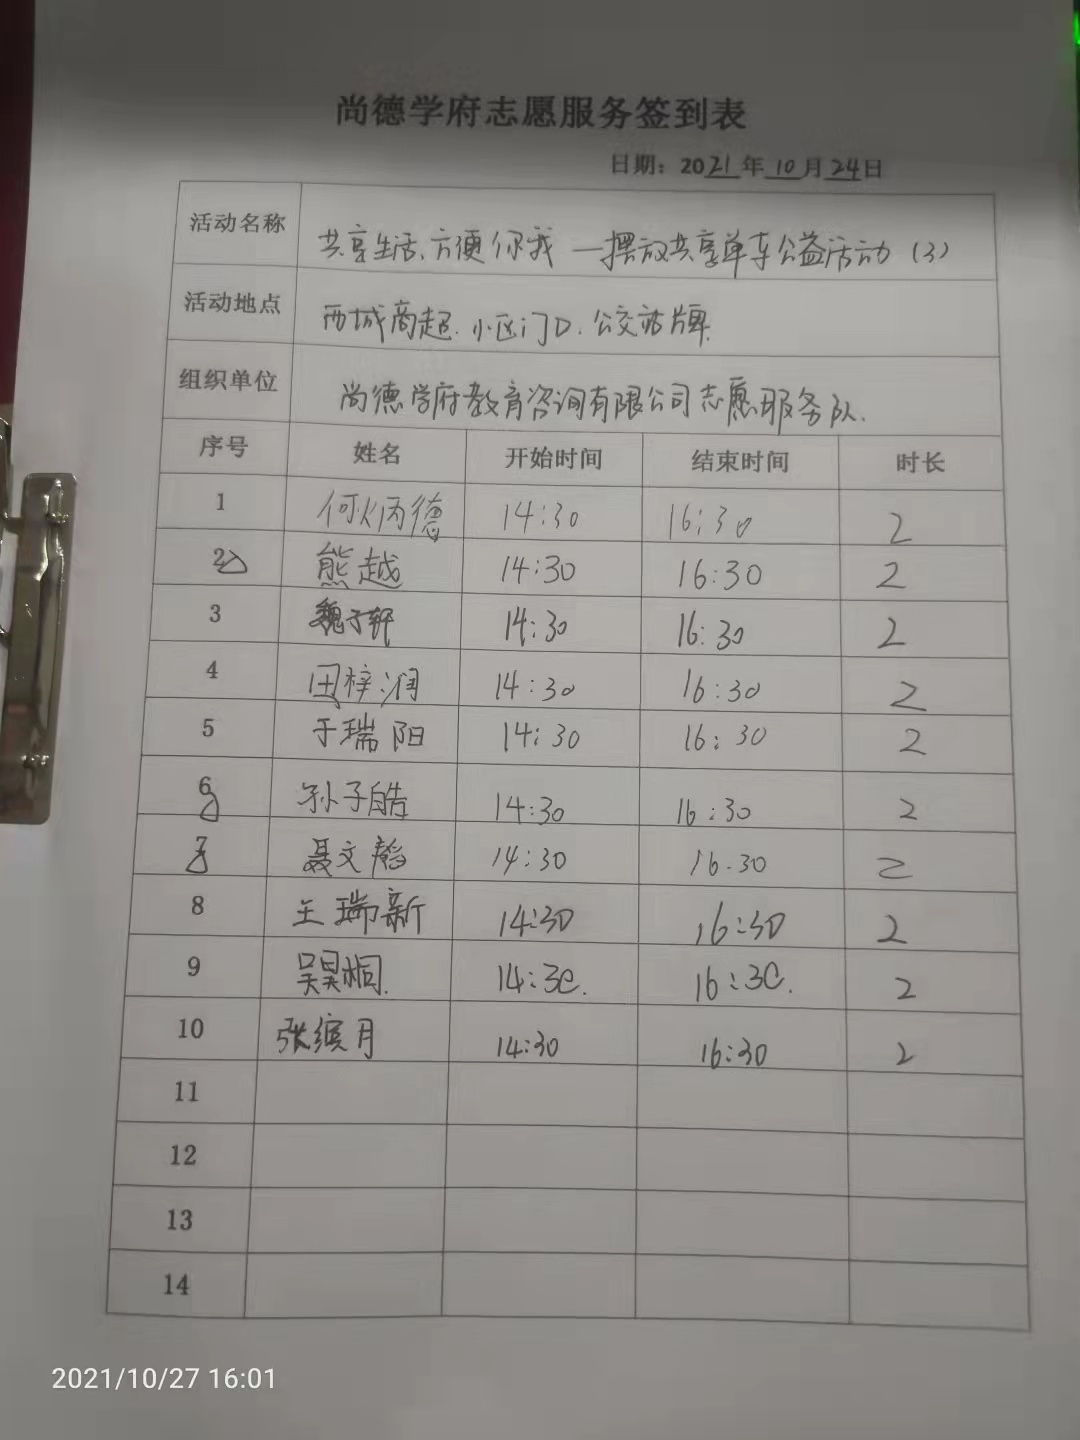 尚德学府志愿服务签到表
日期：2021年10月24日
活动名称 共享生活、方便你我—摆放共享单车公益活动（3）
活动地点 西城商超、小区门口、公交站牌
组织单位 尚德学府教育咨询有限公司志愿服务队.
序号 姓名 开始时间 结束时间 时长
1 何炳德 14:30 16:30 2
2 熊越 14:30 16:30 2
3 魏子轩 14:30 16:30 2
4 田梓润 14:30 16:30 2
5 于瑞阳 14:30 16:30 2
6 孙子皓 14:30 16:30 2
7 聂文韬 14:30 16.30 2
8 王瑞新 14:30 16:30 2
9 吴昊桐. 14:30. 16:30. 2
10 张缤月 14:30 16:30 2
11
12
13
14
2021/10/27 16:01